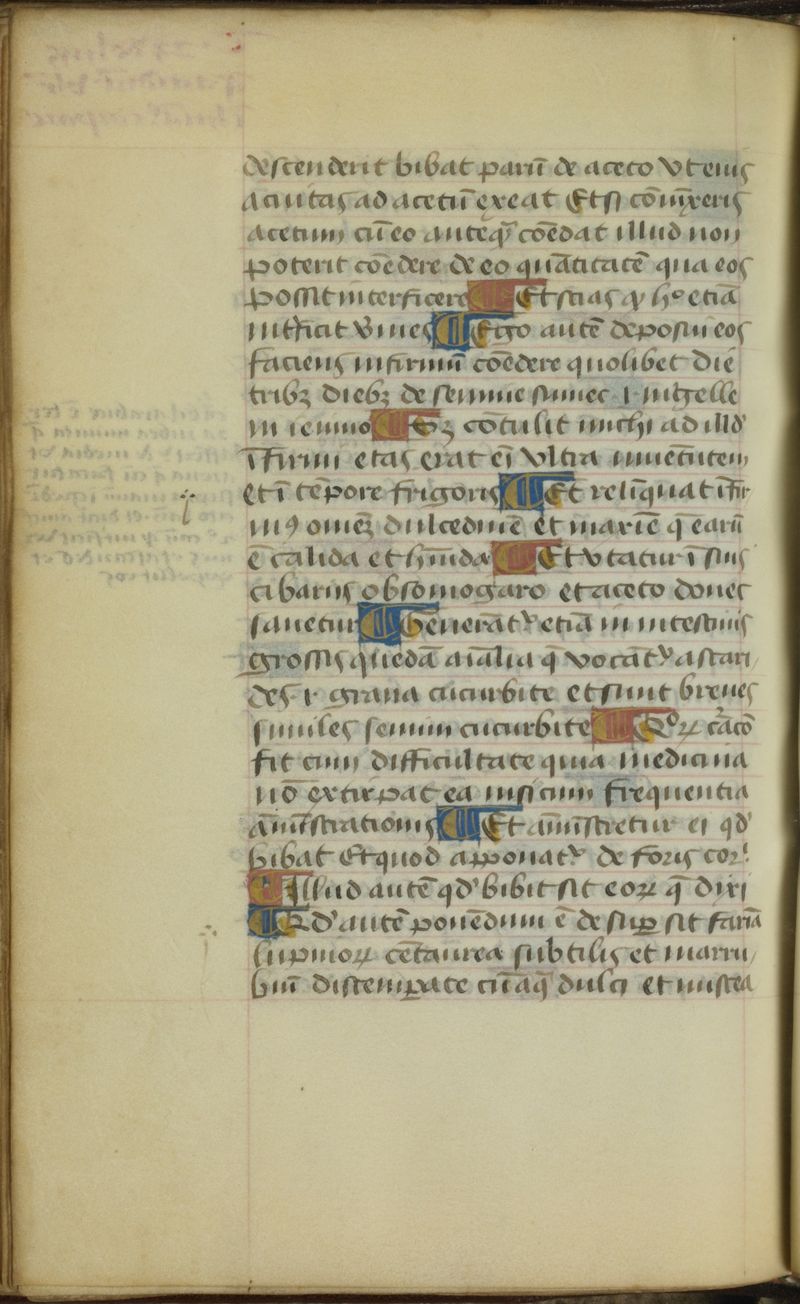 descenderit bibat parũ de aceto vt eius
acuitas ad acetũ exeat Et si cõmixeris
acetum cũ eo anteq̃ cõedat illud non
poterit cõedere de eo quãtitatẽ qua eos
possit interficere ¶ Et scias qꝫ hᵒ etiã
intficit vmes ¶ Ego autẽ deposui eos
faciens infirmũ cõedere quolibet die
tribꝫ diebꝫ de semine sinnec ⁊ nigelle
in ieiunio ¶ cõtulit michi ad illd'
ĩfirmi etas erat eĩ vltra iuuẽtutem
et ĩ tẽpore frigoris ¶ Et relĩquat ĩfir
mꝰ omeꝫ dulcedinẽ et maxiẽ q̃ earũ
ẽ calida et hũida ¶ Et vtatur ĩ suis
cibariis obsomogaro et aceto donec
sanetur ¶ Generãtʳ etiã in intestinis
grossis quedã aĩalia q̃ vocãtʳ ascari
des ⁊ grana cucurbite et sunt breues
similes semini cucurbite ¶ Qᵒꝝ c̃acõ
fit cum difficultate quia medicina
nõ extirpat ea nisi cum frequentia
ãmĩstrationis ¶ Et ãmĩstretur ei qd'
bibat Et quod apponatʳ de foris corʳⁱ
¶ Illud autẽ qd' bibit sit eoꝝ q̃ dixi
¶ Qd' autẽ ponẽdum ẽ desuꝑ sit farĩa
lupinoꝝ cẽtaurea subtilis et marru
biũ distemꝑate cũ aq̃ dulci et miscea